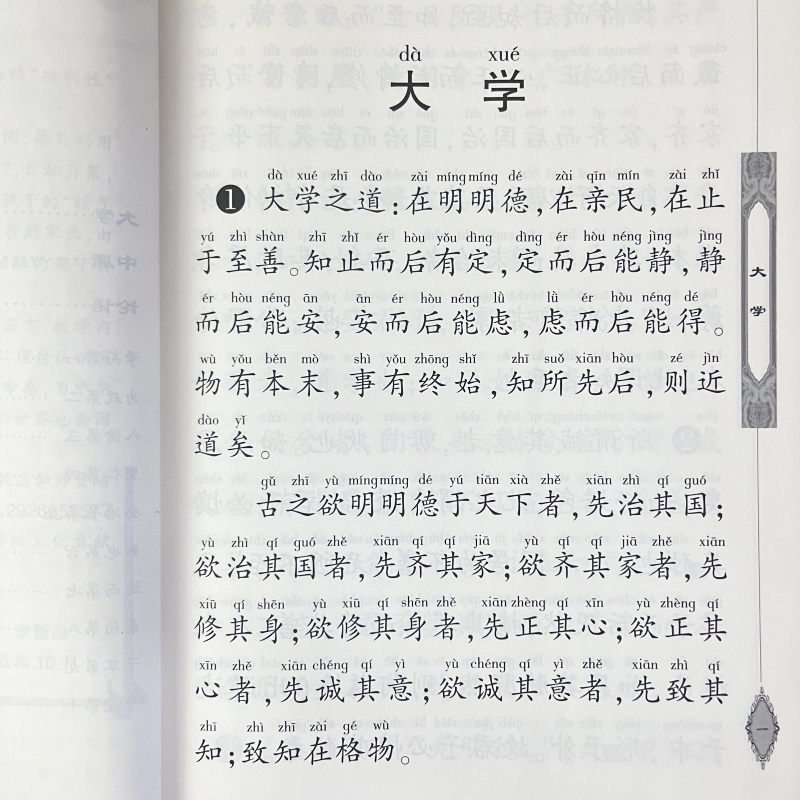 dà xué
大学
dà xué zhī dào zài míng míng dé zài qīn mín zài zhǐ
❶ 大学之道:在明明德,在亲民,在止
yú zhì shàn zhī zhǐ ér hòu yǒu dìng dìng ér hòu néng jìng jìng
于至善。知止而后有定,定而后能静,静
ér hòu néng ān ān ér hòu néng lǜ lǜ ér hòu néng dé
而后能安,安而后能虑,虑而后能得。
wù yǒu běn mò shì yǒu zhōng shǐ zhī suǒ xiān hòu zé jìn
物有本末,事有终始,知所先后,则近
dào yǐ
道矣。
gǔ zhī yù míng míng dé yú tiān xià zhě xiān zhì qí guó
古之欲明明德于天下者,先治其国;
yù zhì qí guó zhě xiān qí qí jiā yù qí qí jiā zhě xiān
欲治其国者,先齐其家;欲齐其家者,先
xiū qí shēn yù xiū qí shēn zhě xiān zhèng qí xīn yù zhèng qí
修其身;欲修其身者,先正其心;欲正其
xīn zhě xiān chéng qí yì yù chéng qí yì zhě xiān zhì qí
心者,先诚其意;欲诚其意者,先致其
zhī zhì zhī zài gé wù
知;致知在格物。
大学
一